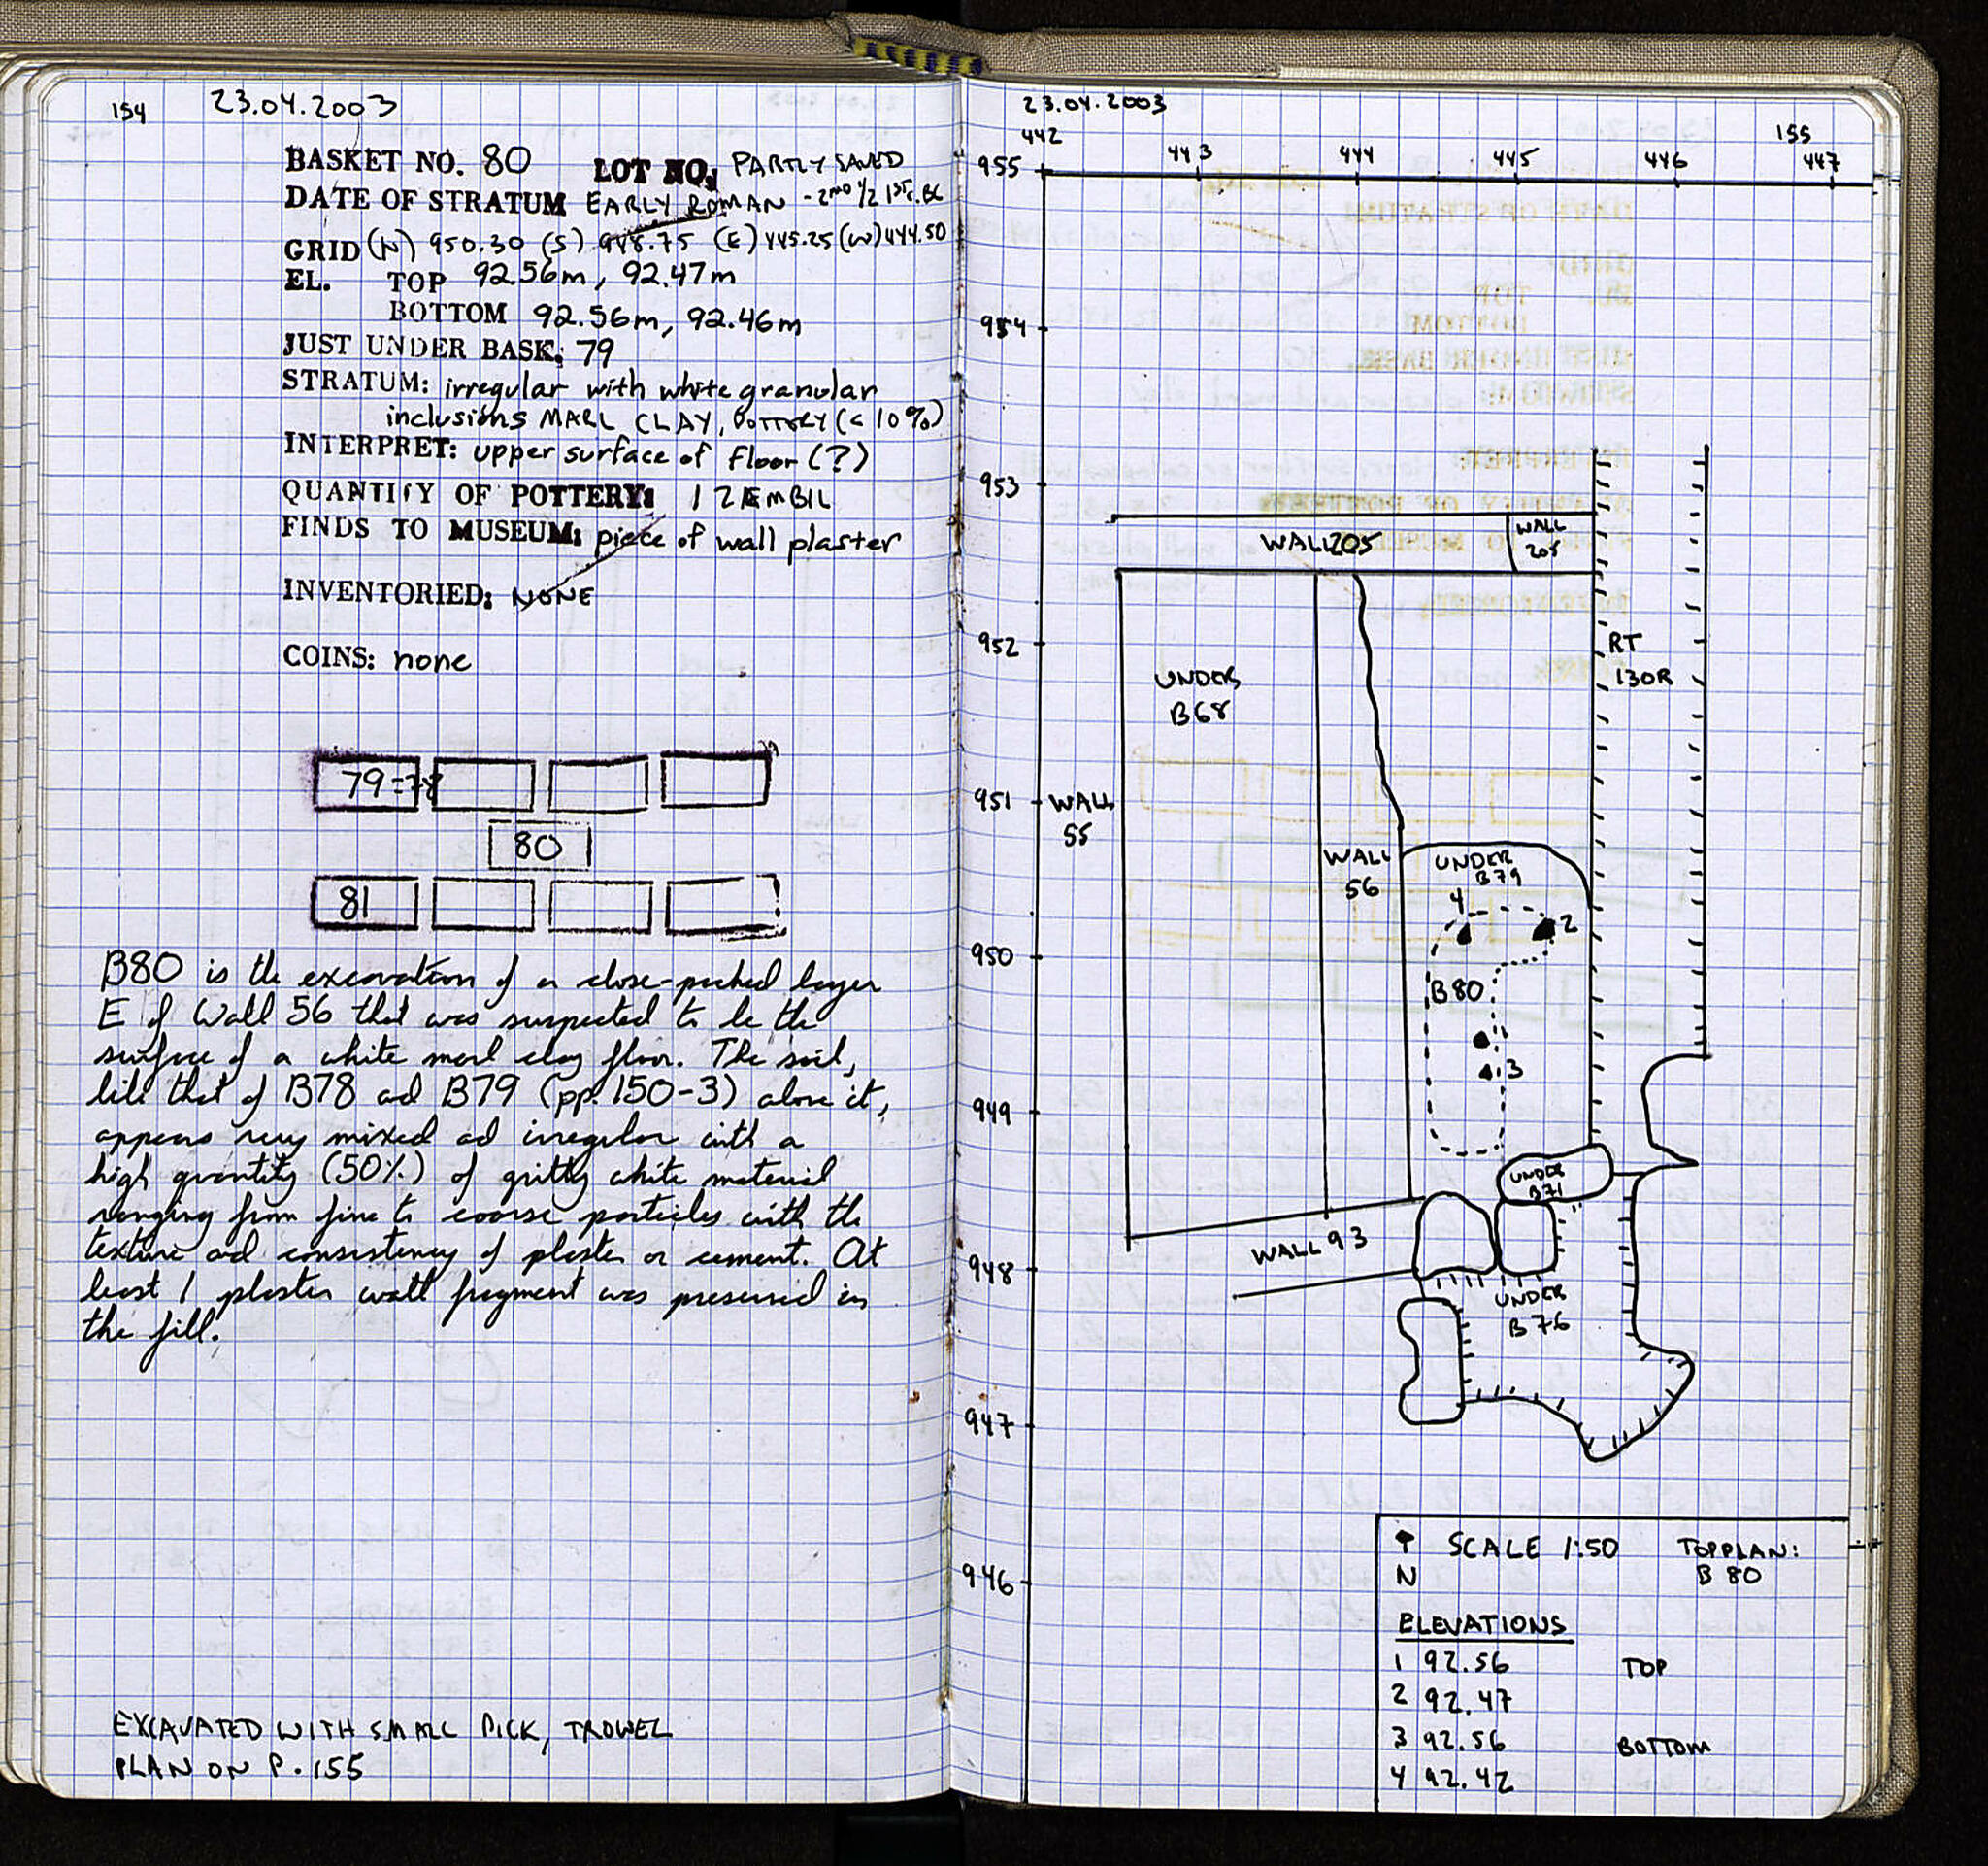 154 23.04.2003
BASKET NO. 80 LOT NO. PARTLY SAVED
DATE OF STRATUM EARLY ROMAN - 2ND 1/2 1ST c. BC
GRID (N) 950.30 (S) 948.75 (E) 445.25 (W) 444.50
EL. TOP 92.56m, 92.47m
BOTTOM 92.56m, 92.46m
JUST UNDER BASK. 79
STRATUM: irregular with white granular
inclusions MARL CLAY, POTTERY (< 10%)
INTERPRET: upper surface of floor (?)
QUANTITY OF POTTERY: 1 ZEMBIL
FINDS TO MUSEUM: piece of wall plaster
INVENTORIED: NONE
COINS: none
79=78
80
81
B80 is the excavation of a close-packed layer
E of Wall 56 that was suspected to be the
surface of a white marl clay floor. The soil,
like that of B78 ad B79 (pp. 150-3) above it,
appears very mixed ad irregular with a
high quantity (50%) of gritty white material
ranging from fine to coarse particles with the
texture ad consistency of plaster or cement. At
least 1 plaster wall fragment was preserved in
the fill.
EXCAVATED WITH SMALL PICK, TROWEL
PLAN ON P. 155
23.04.2003
155
442 443 444 445 446 447
955
954
953
WALL 205
WALL
205
952
RT
130R
UNDER
B68
951
WALL
55
WALL
56
UNDER
B79
4
2
950
B80
1
3
949
UNDER
B71
WALL 93
948
UNDER
B76
947
946
N
SCALE 1:50
TOPPLAN:
B 80
ELEVATIONS
1 92.56 TOP
2 92.47
3 92.56 BOTTOM
4 92.42